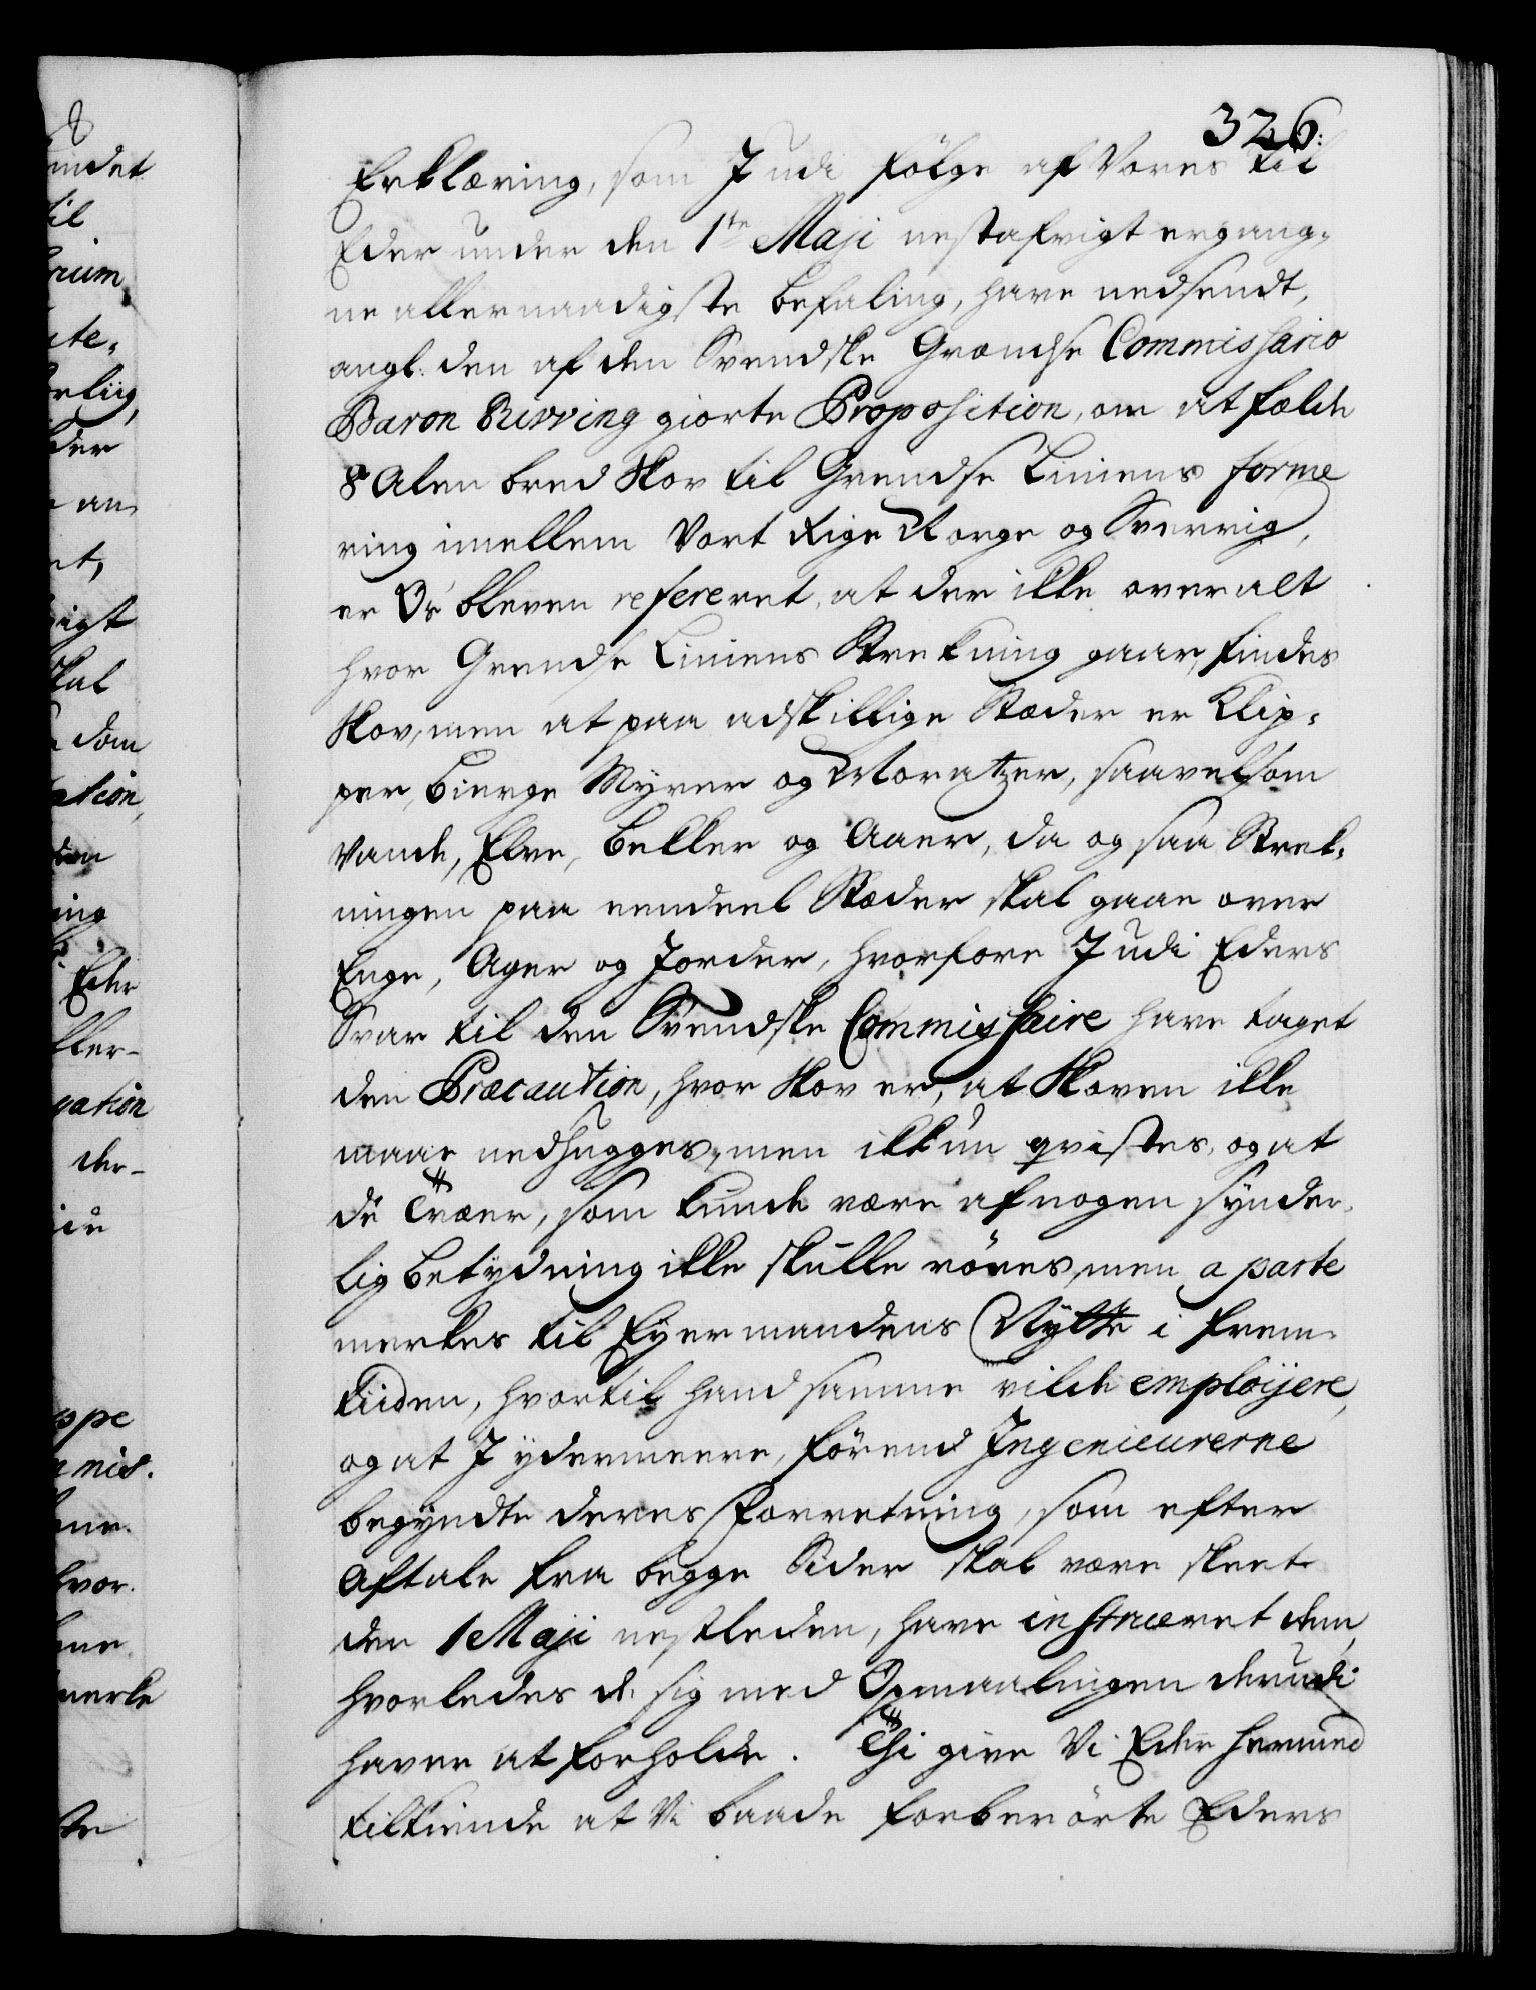 326.
Erklæring, som I udi følge af Vores til
Eder under den 1te Maji nestafvigt ergang-
ne allernaadigste Befaling, have nedsendt,
angl. den af den Svendske Grændse Commissario
Baron giorte Proposition, om at fælde
8 Alen bred Skov til Grendse Liniens forme
ring imellem Vort Rige Norge og Sverrig,
er Os bleven refereret, at der ikke overalt
hvor Grendse Liniens Strekning gaar, findes
Skov, men at paa adskillige Stæder er Klip-
per, Bierge Myrer og Moratzer, saavelsom
Vande, Elve, Bekker og Aaer, da og saa Strek-
ningen paa eendeel Stæder skal gaae over
Enge, Ager og Jorder, hvorfore I udi Eders
Svar til den Svendske Commissaire have taget
den Præcaution, hvor Skov er, at Skoven ikke
maae nedhugges, men ikkun qvistes, og at
de Træer, som kunde være af nogen synder-
lig betydning ikke skulle röres, men a parte
merkes til Eyermandens Nytte i frem-
tiiden, hvortil hand samme vilde emploijere,
og at I ydermeere, förend Ingenieurerne
begyndte deres Forretning, som efter
Aftale fra begge Sider skal være skeet
den 1 Maji nestleden, have instrueret dem,
hvorledes de sig med Opmaalingen derudi
haver at forholde. Thi give Vi Eder hermed
tilkiende at Vi baade forberörte Eders